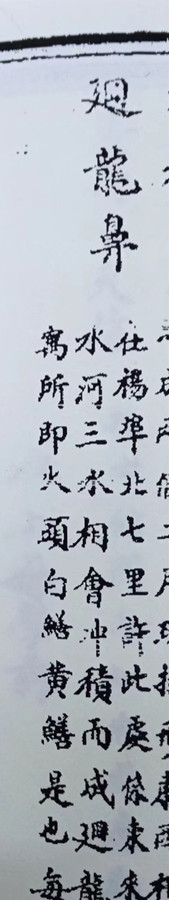 廻龍鼻
仕楊埠北七里許此處係東來
水河三水相會沖積而成廻龍
寓所即火頭白鱔黄鱔是也每